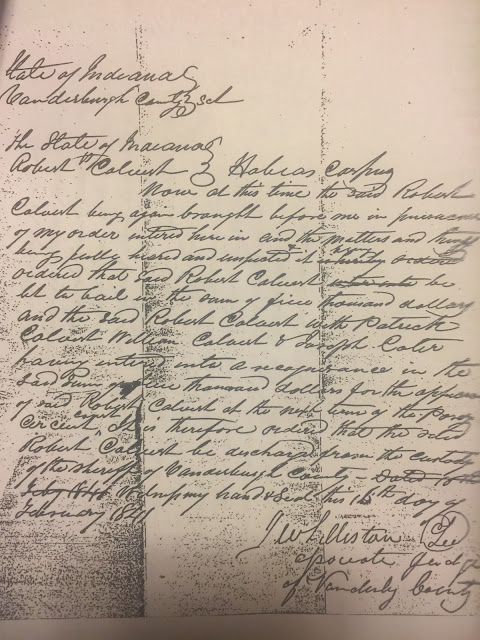 State of Indiana
Vanderburgh County Sct
The State of Indiana
Robert Calvert } Habeas Corpus
Now at this time the said Robert
Calvert being again brought before me in pursuance
of my order entered here in and the matters and things
being fully heard and inspected it is ordered
ordered that said Robert Calvert be
let to bail in the sum of five thousand dollars
and the said Robert Calvert with Patrick
Calvert William Calvert & Joseph Cater
having entered into a recognizance in the
said sum of five thousand dollars for the appear
of said Robert Calvert at the next term of the Posey
Circuit It is therefore ordered that the said
Robert Calvert be discharged from the custody
of the sheriff of Vanderburgh County Dated
Feby my hand & Seal this 18th day of
February
J W Lilliston
Judge
of Vanderbg County